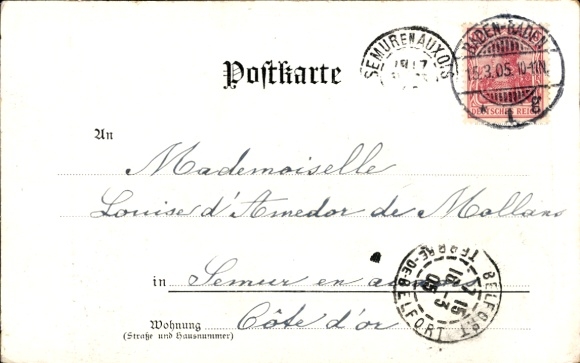 Postkarte
SEMUR EN AUXOIS
BADEN-BADEN
15.3.05. 10-11N.
* 1 g
DEUTSCHES REICH
An
Mademoiselle
Louise d'Amedor de Mollans
in Semur en auxois
Côte d'or
Wohnung
(Straße und Hausnummer)
BELFORT
TERRE-DE-BELFORT
7 15
16 3
05